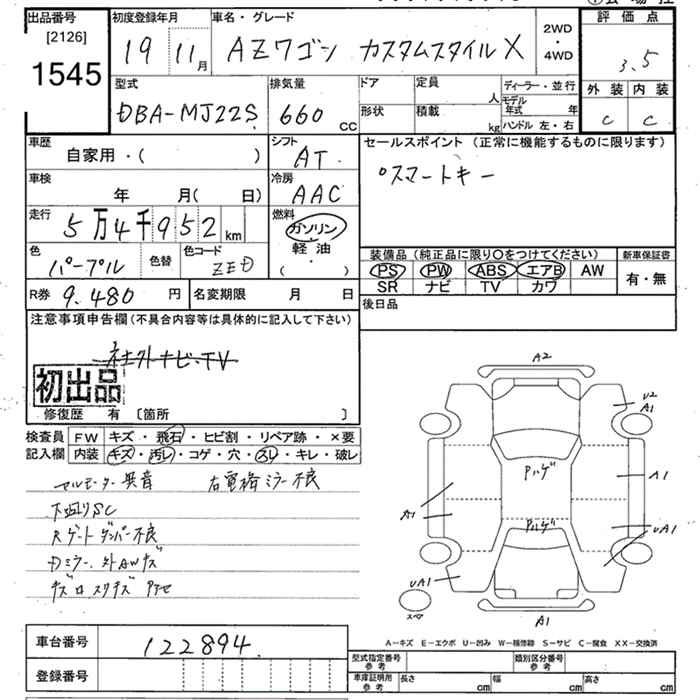 出品番号
[2126]
1545
初度登録年月
19 11月
車名・グレード
AZワゴン カスタムスタイルX
2WD
・
4WD
評価点
3.5
外装 内装
C C
型式
DBA-MJ22S
排気量
660 CC
ドア
形状
定員 人
積載 kg
ディーラー・並行
モデル年式 年
ハンドル 左・右
車歴
自家用・( )
シフト
AT
セールスポイント (正常に機能するものに限ります)
スマートキー
車検
年 月( 日)
冷房
AAC
走行
5万4千952 km
燃料
ガソリン
軽油
・( )
色
パープル
色替
色コード
ZED
装備品(純正品に限り○をつけてください)
PS PW ABS エアB AW
SR ナビ TV カワ
新車保証書
有・無
R券 9.480 円
名変期限 月 日
後日品
注意事項申告欄(不具合内容等は具体的に記入して下さい)
社外ナビ・TV
初出品
修復歴 有 〔箇所 〕
検査員
記入欄
FW キズ・飛石・ヒビ割・リペア跡・×要
内装 キズ・汚レ・コゲ・穴・スレ・キレ・破レ
セルモーター異音 右電格ミラー不良
下廻りSC
Rゲートダンパー不良
Dミラー、外AWキズ
A2
U2
A1
ハゲ
A1
A1
ハゲ
UA1
UA1
スペア
A1
A-キズ E-エクボ U-凹み W-補修跡 S-サビ C-腐食 XX-交換済
車台番号 122894
登録番号
型式指定番号
参考
類別区分番号
参考
車庫証明用
参考
長さ cm
幅 cm
高さ cm